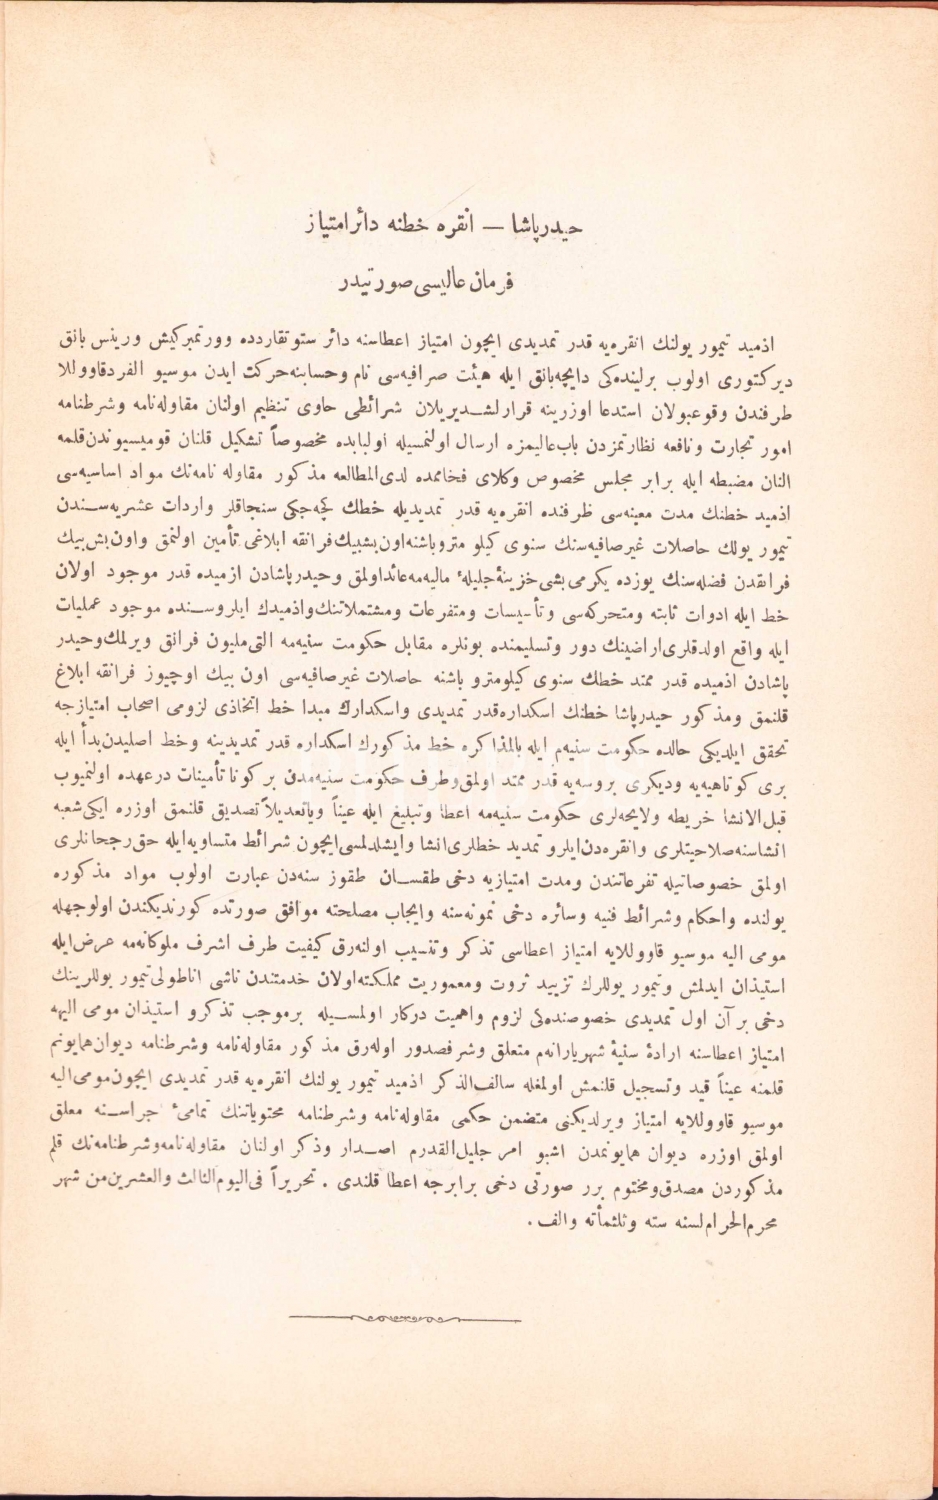 حیدرپاشا — انقره خطنه دائر امتیاز
فرمان عالیسی صورتیدر
ازمید تیمور یولنك انقره‌یه قدر تمدیدی ایچون امتیاز اعطاسنه دائر ستوتقاردده وورتمبرکیش ورینس بانق
دیرکتوری اولوب برلینده‌کی دایچه‌بانق ایله هیئت صرافیه‌سی نام وحسابنه حرکت ایدن موسیو الفرد قاووللا
طرفندن وقوعبولان استدعا اوزرینه قرارلشدیریلان شرائطی حاوی تنظیم اولنان مقاوله‌نامه وشرطنامه
امور تجارت ونافعه نظارتمزدن باب‌عالیمزه ارسال اولنمسیله اولبابده مخصوصاً تشکیل قلنان قومیسیوندن قلمه
النان مضبطه ایله برابر مجلس مخصوص وکلای فخاممده لدی‌المطالعه مذکور مقاوله نامه‌نك مواد اساسیه‌سی
ازمید خطنك مدت معینه‌سی ظرفنده انقره‌یه قدر تمدیدیله خطك کچه‌جکی سنجاقلر واردات عشریه‌سندن
تیمور یولك حاصلات غیرصافیه‌سنك سنوی کیلو متروباشنه اون بشبیك فرانقه ابلاغی تأمین اولنمق واون بش بیك
فرانقدن فضله‌سنك یوزده یکرمی بشی خزینهٔ جلیلهٔ مالیه‌مه عائد اولمق وحیدرپاشادن ازمیده قدر موجود اولان
خط ایله ادوات ثابته ومتحرکه‌سی وتأسیسات ومتفرعات ومشتملاتنك وازمیدك ایلروسنده موجود عملیات
ایله واقع اولدقلری اراضینك دور وتسلیمنده بونلره مقابل حکومت سنیه‌مه التی ملیون فرانق ویرلمك وحیدر
پاشادن ازمیده قدر ممتد خطك سنوی کیلومترو باشنه حاصلات غیرصافیه‌سی اون بیك اوچیوز فرانقه ابلاغ
قلنمق ومذکور حیدرپاشا خطنك اسکداره قدر تمدیدی واسکدارك مبدا خط اتخاذی لزومی اصحاب امتیازجه
تحقق ایلدیکی حالده حکومت سنیه‌م ایله بالمذاکره خط مذکورك اسکداره قدر تمدیدینه وخط اصلیدن بدأ ایله
بری کوتاهیه‌یه ودیکری بروسه‌یه قدر ممتد اولمق وطرف حکومت سنیه‌مدن برکونا تأمینات درعهده اولنمیوب
قبل‌الانشا خریطه ولایحه‌لری حکومت سنیه‌مه اعطا وتبلیغ ایله عیناً ویاتعدیلاً تصدیق قلنمق اوزره ایکی شعبه
انشاسنه صلاحیتلری وانقره‌دن ایلرو تمدید خطلری انشا وایشلدلمسی ایچون شرائط متساویه ایله حق رجحانلری
اولمق خصوصاتیله تفرعاتندن ومدت امتیازیه دخی طقسان طقوز سنه‌دن عبارت اولوب مواد مذکوره
یولنده واحکام وشرائط فنیه وسائره دخی نمونه‌سنه وایجاب مصلحته موافق صورتده کورندیکندن اولوجهله
مومی الیه موسیو قاووللایه امتیاز اعطاسی تذکر وتنسیب اولنه‌رق کیفیت طرف اشرف ملوکانه‌مه عرض ایله
استیذان ایدلمش وتیمور یوللرك تزیید ثروت ومعموریت مملکته اولان خدمتندن ناشی اناطولی تیمور یوللرینك
دخی بر آن اول تمدیدی خصوصنده‌کی لزوم واهمیت درکار اولمسیله برموجب تذکر و استیذان مومی الیهه
امتیاز اعطاسنه ارادهٔ سنیهٔ شهریارانه‌م متعلق وشرفصدور اوله‌رق مذکور مقاوله‌نامه وشرطنامه دیوان همایونم
قلمنه عیناً قید وتسجیل قلنمش اولمغله سالف‌الذکر ازمید تیمور یولنك انقره‌یه قدر تمدیدی ایچون مومی الیه
موسیو قاووللایه امتیاز ویرلدیکنی متضمن حکمی مقاوله‌نامه وشرطنامه محتویاتنك تمامیٔ جراسنه معلق
اولمق اوزره دیوان همایونمدن اشبو امر جلیل‌القدرم اصدار وذکر اولنان مقاوله‌نامه وشرطنامه‌نك قلم
مذکوردن مصدق ومختوم برر صورتی دخی برابرجه اعطا قلندی . تحریراً فی‌الیوم‌الثالث والعشرین من شهر
محرم‌الحرام لسنه سته وثلثمأته والف .